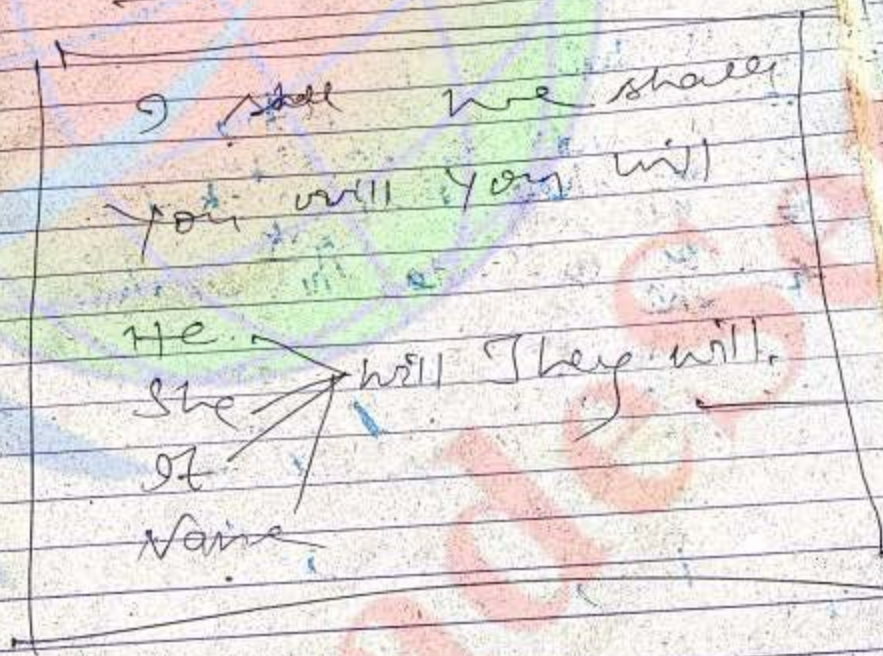 I shall we shall
You will You will
He
She will They will.
It
Name